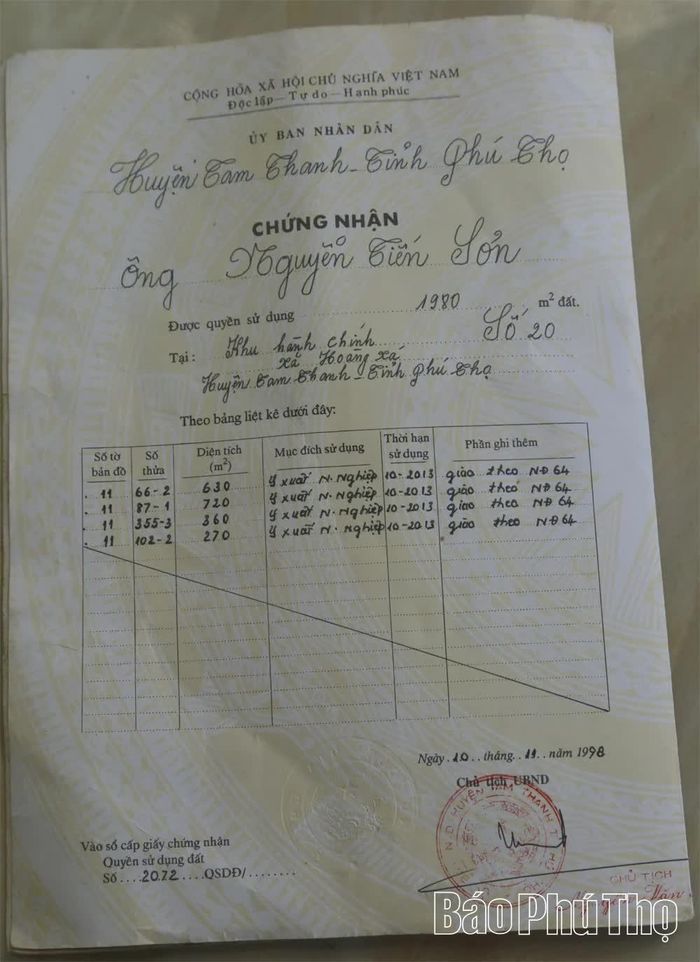 CỘNG HÒA XÃ HỘI CHỦ NGHĨA VIỆT NAM
Độc lập - Tự do - Hạnh phúc
ỦY BAN NHÂN DÂN
Huyện Tam Thanh - Tỉnh Phú Thọ
CHỨNG NHẬN
Ông Nguyễn Tiến Sơn
Được quyền sử dụng 1980 m² đất.
Tại: Khu hành chính Số 20
Xã Hoàng Xá
Huyện Tam Thanh - Tỉnh Phú Thọ
Theo bảng liệt kê dưới đây:
Số tờ bản đồ Số thửa Diện tích (m²) Mục đích sử dụng Thời hạn sử dụng Phần ghi thêm
11 66-2 630 xuất N. Nghiệp 10-2013 giao theo NĐ 64
11 87-1 720 xuất N. Nghiệp 10-2013 giao theo NĐ 64
11 355-3 360 xuất N. Nghiệp 10-2013 giao theo NĐ 64
11 102-2 270 xuất N. Nghiệp 10-2013 giao theo NĐ 64
Ngày 10 tháng 11 năm 1998
Chủ tịch UBND
N.D HUYỆN TAM THANH
Vào sổ cấp giấy chứng nhận
Quyền sử dụng đất
Số 2072 QSDĐ/
CHỦ TỊCH
Nguyễn Văn
Báo Phú Thọ